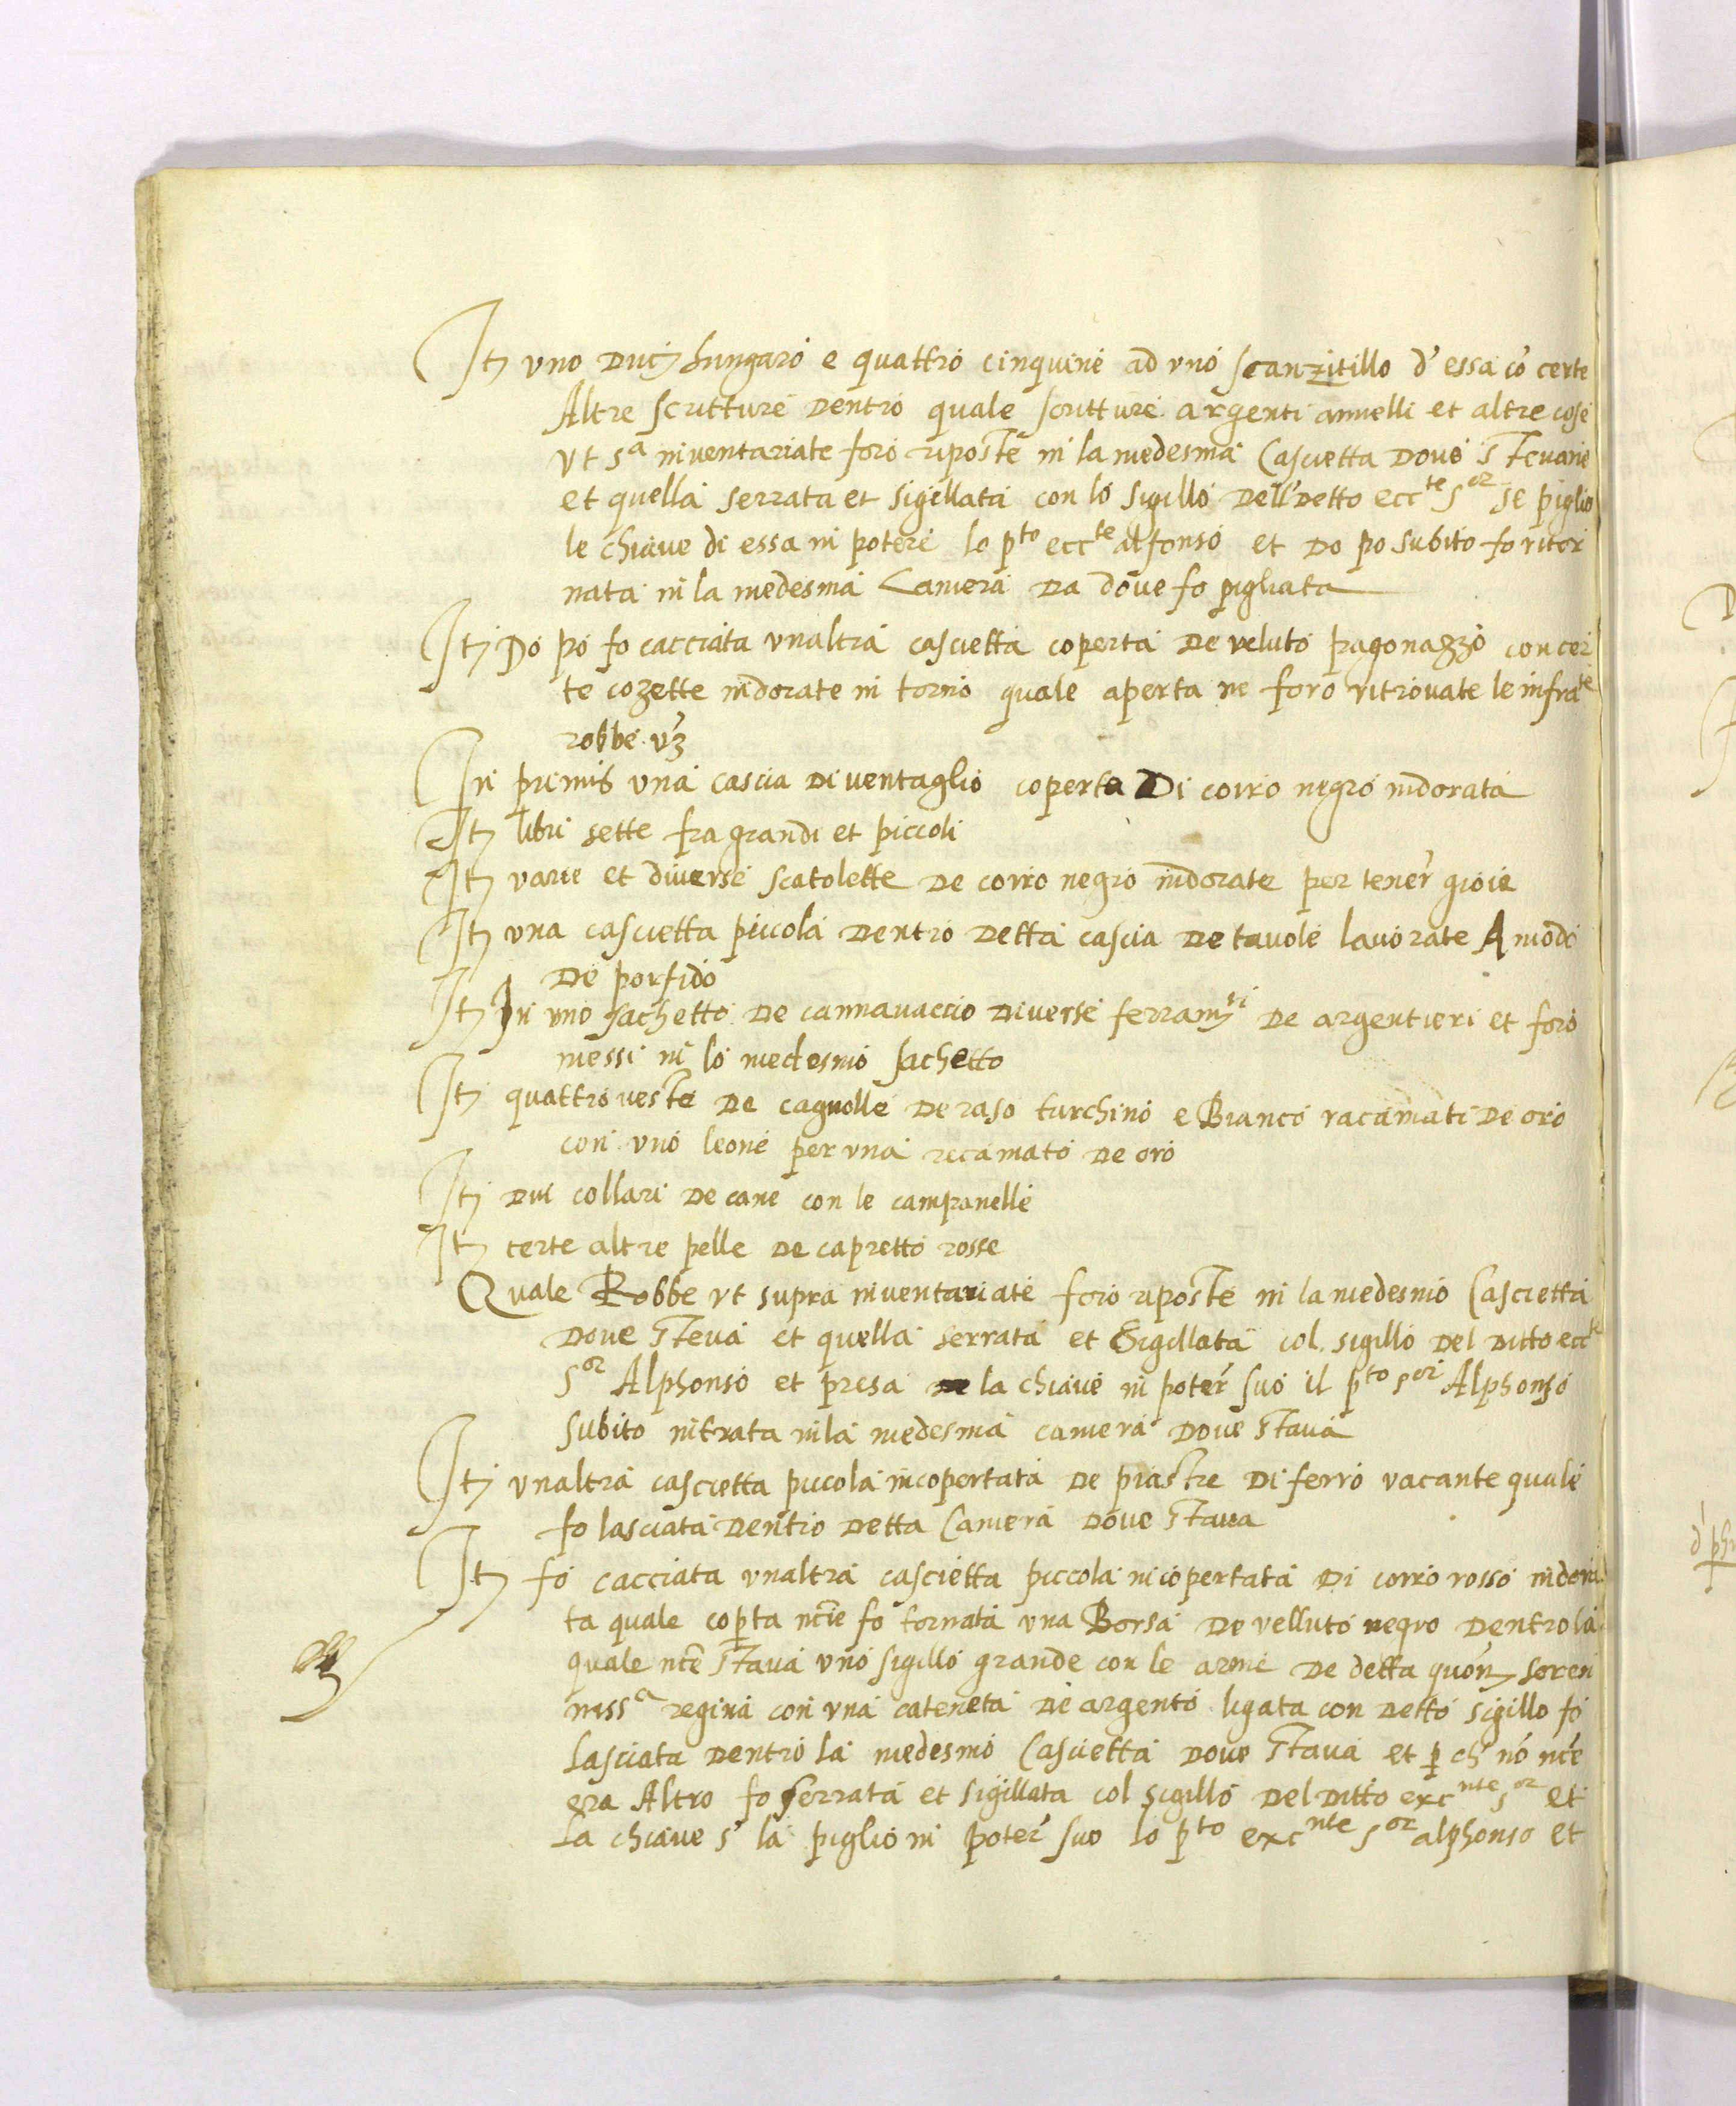 Itȝ uno Ducȝ hungaro e quattro cinquine ad uno scanzitillo d' essa cõ certe
Altre scritture Dentro quale scritture argenti annelli et altre cose
ut sª inventariate foro riposte in la medesma Cascietta Dove stevane
et quella serrata et sigellata con lo sigillo Dell' Detto eccᵗᵉ Sᵒʳ se piglio
le chiave di essa in potere lo pᵗᵒ eccᵗᵉ alfonso et Do po subito fo ritor
nata in la medesma Camera Da dove fo pigliata
Itȝ Do po fo cacciata unaltra cascietta coperta De veluto pagonazzo con cer
te cozette indorate in torno quale aperta ne foro ritrovate le infraᵗᵉ
robbe vȝ
In primis una cascia Di ventaglio coperta Di corio negro indorata
Itȝ libri sette fra grandi et piccoli
Itȝ varie et diverse scatolette De corio negro indorate per tener' gioie
Itȝ una cascietta piccola Dentro Detta cascia De tavole lavorate A modo
De porfido
Itȝ In uno sachetto De cannavaccio Diverse ferramᵗⁱ De argentieri et foro
messi in lo medesmo sachetto
Itȝ quattro veste De cagnolle De raso turchino e Bianco racamati De oro
con uno leone per una recamato De oro
Itȝ Dui collari De cane con le campanelle
Itȝ certe altre pelle De capretto rosse
Quale Robbe ut supra inventariate foro riposte in la medesmo Cascietta
Dove steva et quella serrata et Sigillata col sigillo Del Ditto eccᵗᵉ
Sᵒʳ Alphonso et presa la chiave in poter' suo il pᵗᵒ sᵒʳ Alphonso
subito intrata in la medesma camera Dove stava
Itȝ unaltra cascietta piccola incopertata De piastre Di ferro vacante quale
fo lasciata Dentro Detta Camera Dove stava
Itȝ fo cacciata unaltra cascietta piccola incopertata Di corio rosso indora
ta quale fo una Borsa De velluto negro Dentro la
quale nc̃e stava uno sigillo grande con le arme De detta quonȝ seren
nissª regina con una cateneta De argento ligata con Detto sigillo fo
Lasciata Dentro la medesmo Cascietta Dove stava et p ch' nõ nc̃e
era Altro fo serrata et sigillata col sigillo Del Ditto excⁿᵗᵉ sᵒʳ et
La chiave s' la piglio in poter' suo lo pᵗᵒ excⁿᵗᵉ sᵒʳ alphonso et